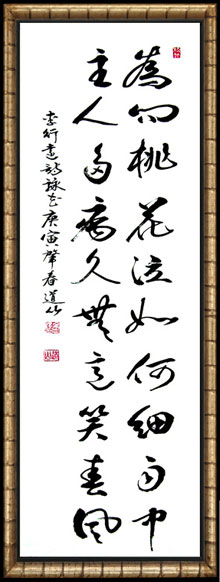 為問桃花泣如何細雨中
主人多病久無意笑春風
李行遠詩詠花庚寅肇春道